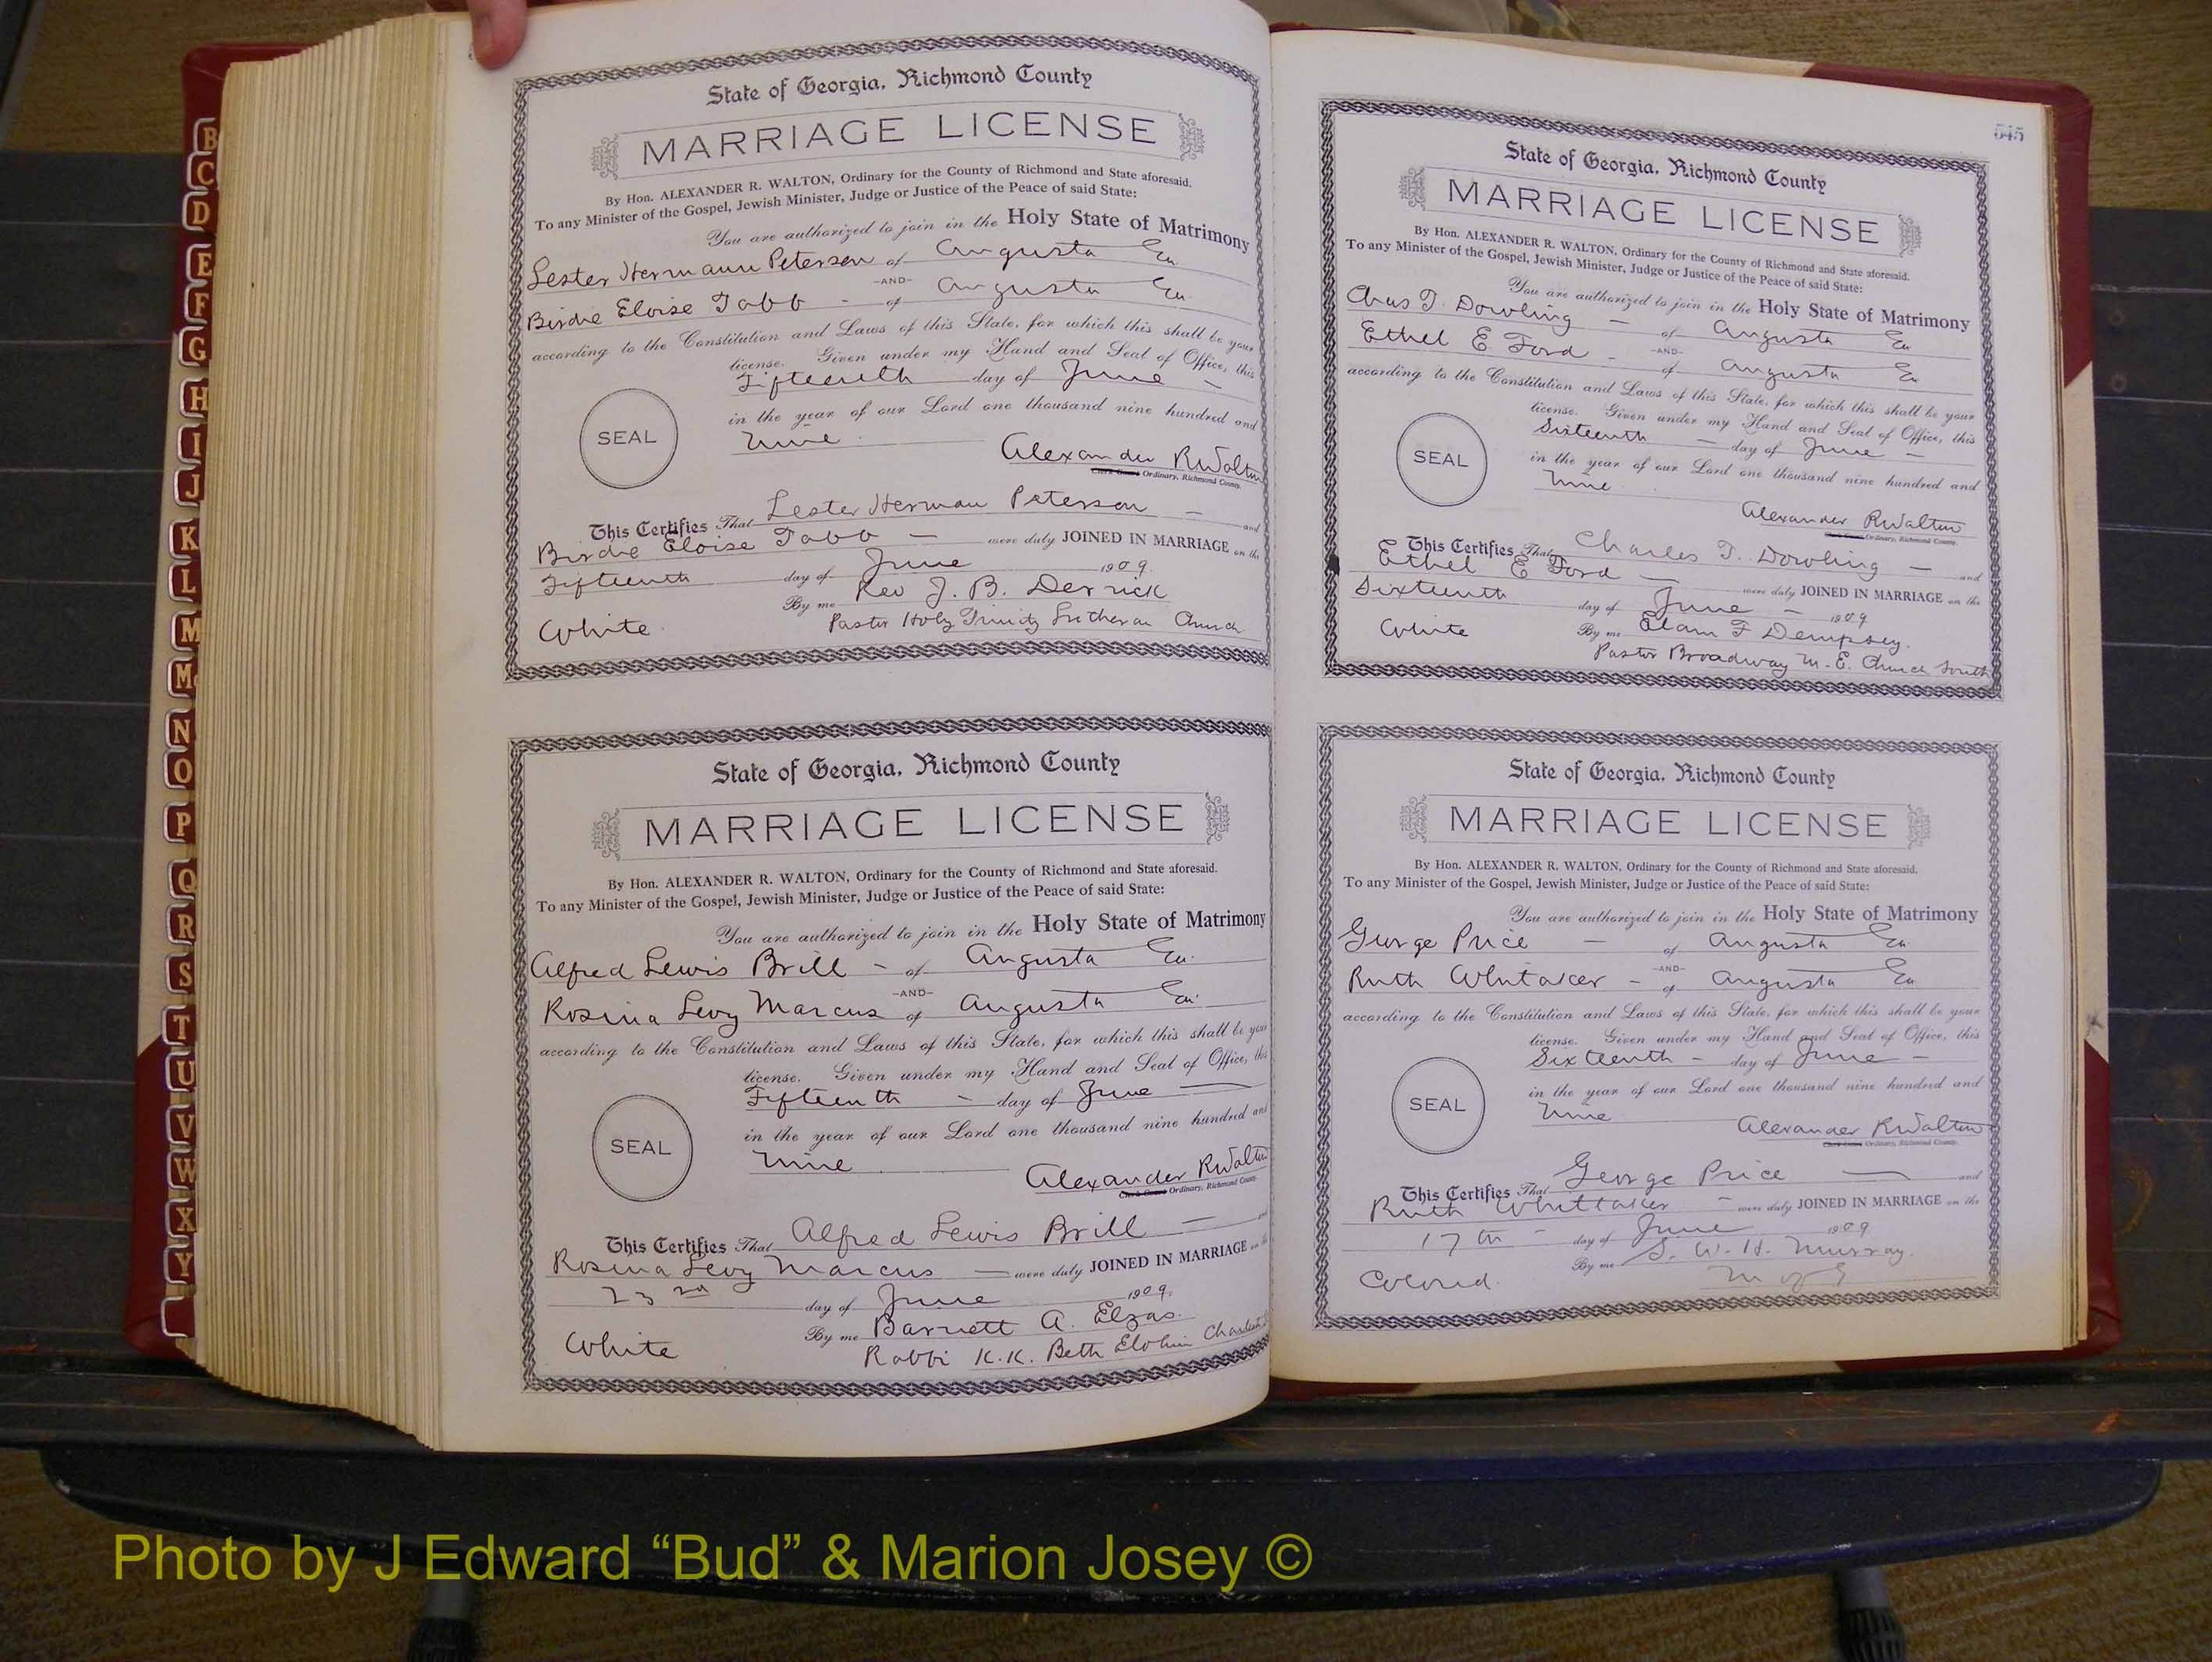 B
C
D
E
F
G
H
I
J
K
L
M
Mc
N
O
P
Q
R
S
T
U
V
W
X
Y
State of Georgia, Richmond County
MARRIAGE LICENSE
By Hon. ALEXANDER R. WALTON, Ordinary for the County of Richmond and State aforesaid.
To any Minister of the Gospel, Jewish Minister, Judge or Justice of the Peace of said State:
You are authorized to join in the Holy State of Matrimony
Lester Hermann Peterson of Augusta Ga
-AND-
Birdie Eloise Tabb - of Augusta Ga
according to the Constitution and Laws of this State, for which this shall be your
license. Given under my Hand and Seal of Office, this
Fifteenth day of June -
in the year of our Lord one thousand nine hundred and
SEAL
nine
Alexander R Walton
Ordinary, Richmond County.
This Certifies That Lester Herman Peterson - and
Birdie Eloise Tabb - were duly JOINED IN MARRIAGE on the
Fifteenth day of June 1909.
By me Rev J. B. Derrick
White Pastor Holy Trinity Lutheran Church
State of Georgia, Richmond County
MARRIAGE LICENSE
By Hon. ALEXANDER R. WALTON, Ordinary for the County of Richmond and State aforesaid.
To any Minister of the Gospel, Jewish Minister, Judge or Justice of the Peace of said State:
You are authorized to join in the Holy State of Matrimony
Alfred Lewis Brill - of Augusta Ga.
-AND-
Rosina Levy Marcus of Augusta Ga.
according to the Constitution and Laws of this State, for which this shall be your
license. Given under my Hand and Seal of Office, this
Fifteenth - day of June
in the year of our Lord one thousand nine hundred and
SEAL
nine
Alexander R Walton
Ordinary, Richmond County.
This Certifies That Alfred Lewis Brill - and
Rosina Levy Marcus - were duly JOINED IN MARRIAGE on the
23rd day of June 1909.
By me Barnett A. Elzas.
White Rabbi K.K. Beth Elohim
545
State of Georgia, Richmond County
MARRIAGE LICENSE
By Hon. ALEXANDER R. WALTON, Ordinary for the County of Richmond and State aforesaid.
To any Minister of the Gospel, Jewish Minister, Judge or Justice of the Peace of said State:
You are authorized to join in the Holy State of Matrimony
Chas T. Dowling - of Augusta Ga
-AND-
Ethel E Ford - of Augusta Ga
according to the Constitution and Laws of this State, for which this shall be your
license. Given under my Hand and Seal of Office, this
Sixteenth - day of June -
in the year of our Lord one thousand nine hundred and
SEAL
nine
Alexander R Walton
Ordinary, Richmond County.
This Certifies That Charles T. Dowling - and
Ethel E Ford - were duly JOINED IN MARRIAGE on the
Sixteenth day of June - 1909
By me Elam F Dempsey.
White Pastor Broadway M. E. Church South
State of Georgia, Richmond County
MARRIAGE LICENSE
By Hon. ALEXANDER R. WALTON, Ordinary for the County of Richmond and State aforesaid.
To any Minister of the Gospel, Jewish Minister, Judge or Justice of the Peace of said State:
You are authorized to join in the Holy State of Matrimony
George Price - of Augusta Ga
-AND-
Ruth Whitaker - of Augusta Ga
according to the Constitution and Laws of this State, for which this shall be your
license. Given under my Hand and Seal of Office, this
Sixteenth - day of June -
in the year of our Lord one thousand nine hundred and
SEAL
nine
Alexander R Walton
Ordinary, Richmond County.
This Certifies That George Price - and
Ruth Whittaker - were duly JOINED IN MARRIAGE on the
17th - day of June 1909
By me S. W. H. Murray.
Colored. M of G
Photo by J Edward “Bud” & Marion Josey ©